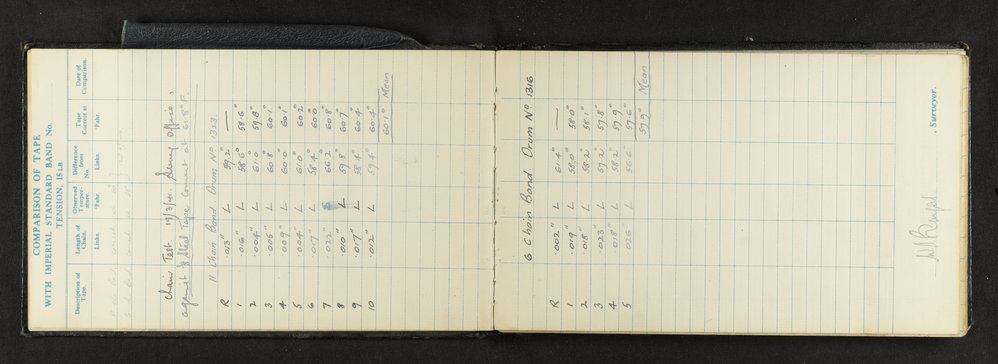 COMPARISON OF TAPE
WITH IMPERIAL STANDARD BAND No.
TENSION, 15 LB.
Description of Tape. Length of Chain. Links. Observed Temperature. °Fahr. Difference from No. Links. Tape Correct at °Fahr. Date of Comparison.
Chain Test 19/3/41 Survey Office,
against Steel Tape Correct at 61.8° F.
11 Chain Band Drum No 1323.
R .013" L 59.2° —
1 .016" L 58.6° 58.6°
2 .004" L 61.0 59.8"
3 .005" L 60.8 60.1°
4 .009" L 60.0 60.1°
5 .004" L 61.0 60.2
6 .017" L 58.4 60.0
7 .022" 66.2 60.8
8 .010" L 59.8° 60.7"
9 .017" L 58.4 60.4
10 .012" L 59.4° 60.4"
60.1° Mean
6 Chain Band Drum No 1316
R .002" L 61.4° —
1 .019" L 58.0° 58.0°
2 .018" L 58.2° 58.1°
3 .023" L 57.2° 57.8°
4 .018" L 58.2 57.9"
5 .026" L 56.6° 57.6"
57.9° Mean
, Surveyor.